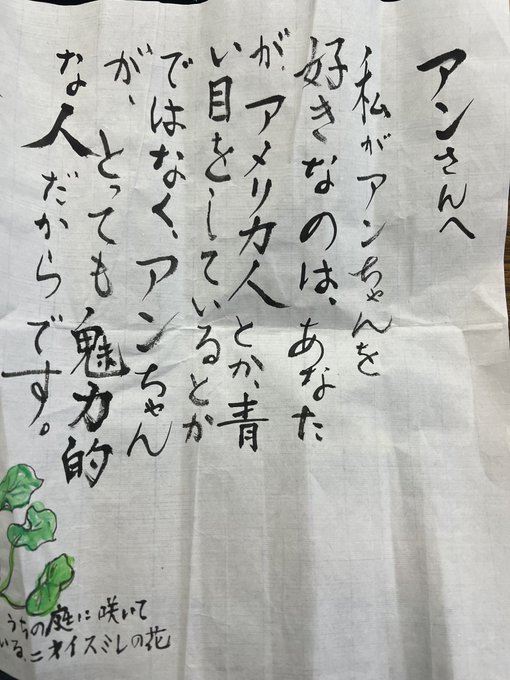 アンさんへ
私がアンちゃんを
好きなのは、あなた
が、アメリカ人とか、青
い目をしているとか
ではなく、アンちゃん
が、とっても魅力的
な人だからです。
うちの庭に咲いて
いる、ニオイスミレの花